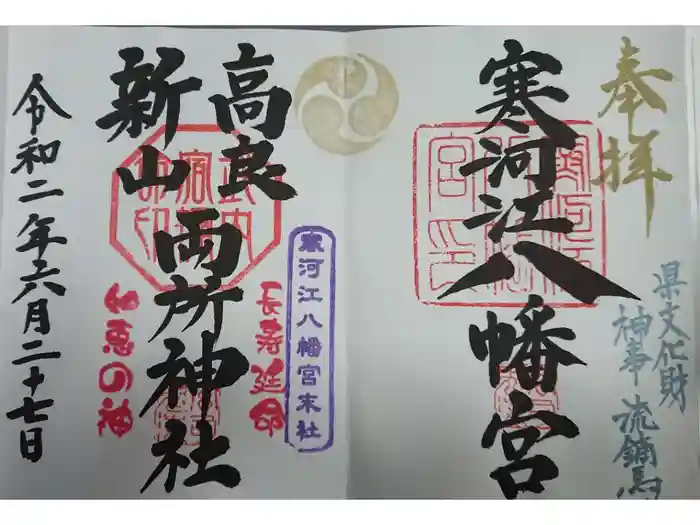 奉拝
県文化財
神事 流鏑馬
寒河江八幡宮
寒河江八幡宮末社
高良
新山
両所神社
長寿延命
知恵の神
令和二年六月二十七日